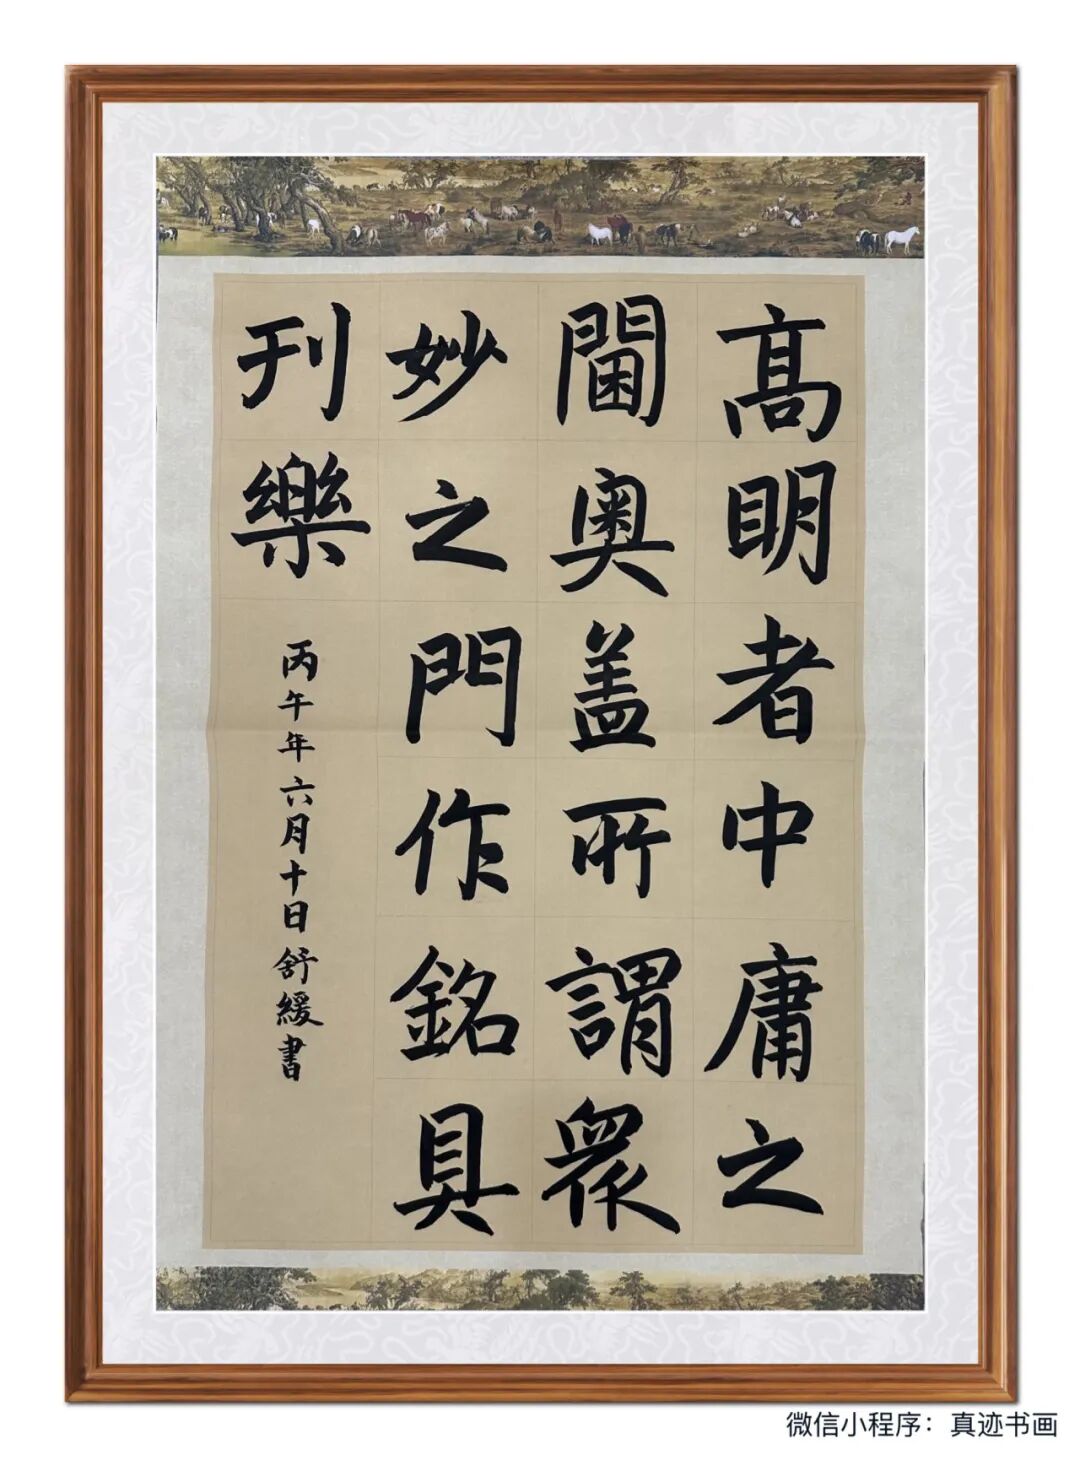 高明者中庸之
閫奧盖所謂衆
妙之門作銘具
刊樂
丙午年六月十日舒緩書
微信小程序：真迹书画